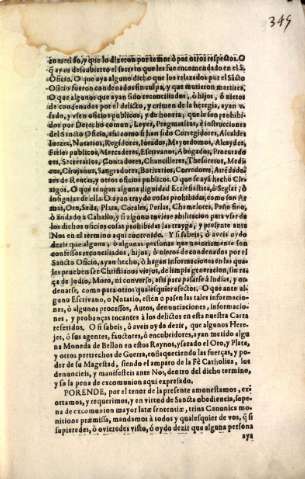 349
zonsecreto, y que lo dixeron por temor ò por otros respectos. O
q̃ ayen descubierto el secreto que les fue encomendado en el S.
Oficio. O que aya alguno dicho que los relaxados por el Sãcto
Oficio fueron condenados sin culpa, y que murieron martires.
O que algunos que ayan sido reconciliados, ò hijos, ò nietos
de condenados por el delicto, y crimen de la heregia, ayan v-
sado, y vsen oficios publicos, y de honrra, que les son prohibi-
dos por Derecho comun, Leyes, Pragmaticas, è instrucciones
del Sancto Oficio, assi como si han sido Corregidores, Alcaldes
Iuezes, Notarios, Regidores, Iurados, Mayordomos, Alcaydes,
Fieles publicos, Mercaderes, Escrivanos, Abogados, Procurado-
res, Secretarios, Contadores, Chancilleres, Thesoreros, Medi-
cos, Cirujanos, Sangradores, Boticarios, Corredores, Arrẽdado-
res de Rentas, y otros oficios publicos. O que se ayã hecho Cle-
rigos. O que tengan alguna dignidad Ecclesiastica, ò Seglar; ò
insignias de ella. O ayan traydo cosas prohibidas, como son Ar-
mas, Oro, Seda, Plata, Corales, Perlas, Chamelotes, Paño fino,
ò andado à Cavallo; y si alguno tuviere abilitacion para vsar de
los dichos oficios cosas prohibidas las trayga, y presente ante
Nos en el termino aqui contenido. Y si sabeis, ò aveis oydo
dezir que alguna; ò algunas personas que notoriamente son
confessos reconciliados, hijos; ò nietos de condenados por el
Sancto Oficio, ayan hecho, ò hagan informaciones en las qua-
les prueben ser Christianos viejos, de limpia generacion, sin raza
ça de Iudios, Moro, ni converso, assi para passar à Indias, y or-
denarse, como para otros qualesquier efectos. O que ante al-
guno Escrivano, o Notario, estén o passen las tales informacio-
nes, ò algunos processos, Autos, denunciaciones, informacio-
nes, y probanças tocantes à los delictos en esta nuestra Carta
referidos. O si sabeis, ò aveis oydo dezir, que algunos Here-
jes, ò sus agentes, fautores, ò encubridores, ayan metido algu-
na Moneda de Bellon en estos Reynos, y sacado el Oro, y Plata,
y otros pertrechos de Guerra, consequeciendo las fuerças, y po-
der de su Magestad, siendo el amparo de la Fè Catholica, los
denuncieis, y manifesteis ante Nos, dentro del dicho termino,
y so la pena de excomunion aqui expresado.
PORENDE, por el tenor de la presente amonestamos, ex-
ortamos, y requerimos, y en virtud de Sancta obediencia, so pe-
na de excomunion mayor latæ sententiæ, trina Canonica mo-
nitione præmissa, mandamos à todos y qualesquier de vos, q̃ si
supieredes, ò ovieredes visto, ò oydo dezir que alguna persona
aya